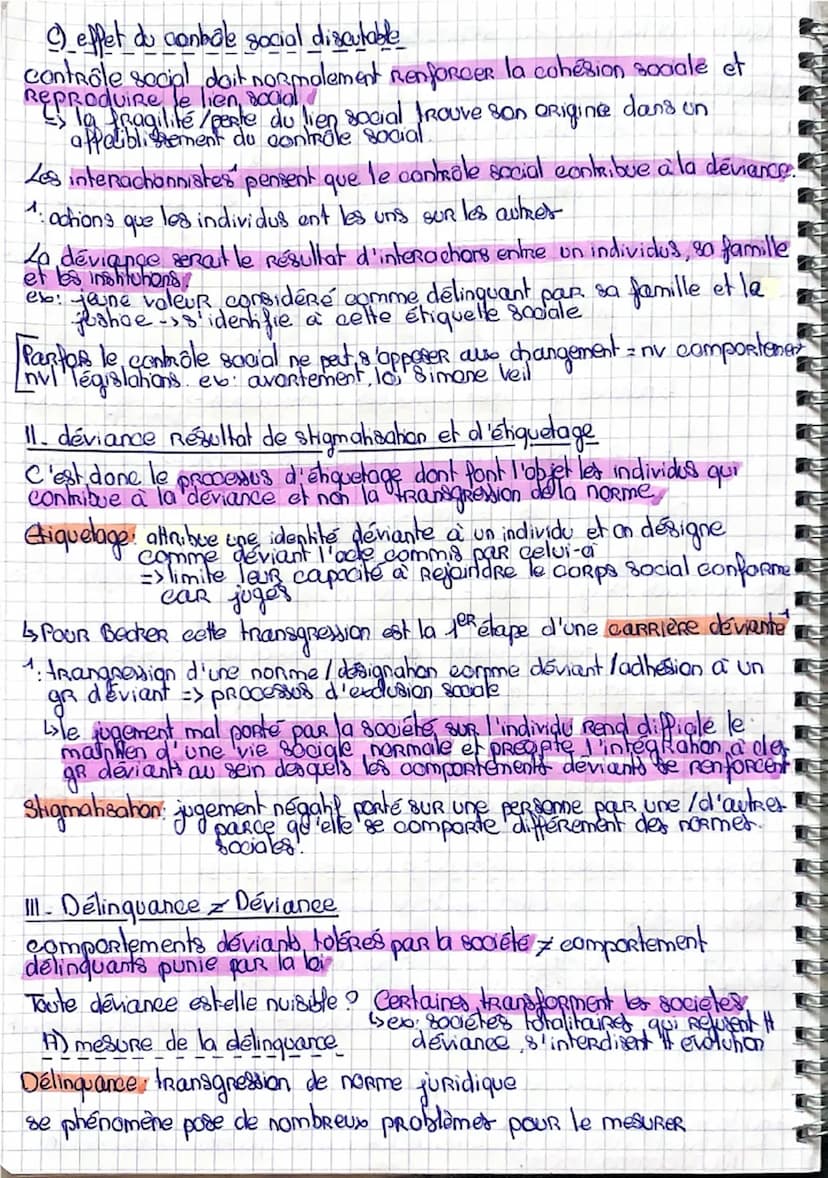 c) effet du contrôle social discutable
contrôle social doit normalement renforcer la cohésion sociale et
reproduire le lien social
↳ la fragilité/perte du lien social trouve son origine dans un
affaiblissement du contrôle social
Les interactionnistes¹ pensent que le contrôle social contribue à la déviance.
¹: actions que les individus ont les uns sur les autres
La déviance serait le résultat d'interactions entre un individus, sa famille
et les institutions,
ex: jeune voleur considéré comme délinquant par sa famille et la
justice -> s'identifie à cette étiquette sociale
Parfois le contrôle social ne peut s'opposer aux changement = nv comportement
nvl législations. ex: avortement, loi Simone Veil
II. déviance résultat de stigmatisation et d'étiquetage
C'est donc le processus d'étiquetage dont font l'objet les individus qui
contribue à la déviance et non la transgression de la norme,
Etiquetage: attribue une identité déviante à un individu et on désigne
comme déviant l'acte commis par celui-ci
=> limite leur capacité à rejoindre le corps social conforme
car jugés
↳ Pour Becker cette transgression est la 1ère étape d'une carrière déviante¹
¹: trangression d'une norme / désignation comme déviant / adhésion à un
gr déviant => processus d'exclusion sociale
↳ le jugement mal porté par la société sur l'individu rend difficile le
maintien d'une vie sociale normale et précipite l'intégration à des
gr déviants au sein desquels les comportements déviants se renforcent
Stigmatisation: jugement négatif porté sur une personne par une/d'autres
parce qu'elle se comporte différement des normes
sociales.
III - Délinquance ≠ Déviance
comportements déviants tolérés par la société ≠ comportement
délinquants punie par la loi
Toute déviance est elle nuisible? Certaines transforment les sociétés
↳ ex: sociétés totalitaires qui refusent tt
A) mesure de la délinquance
déviance, s'interdisent tt évolution
Délinquance: transgression de norme juridique
se phénomène pose de nombreux problèmes pour le mesurer